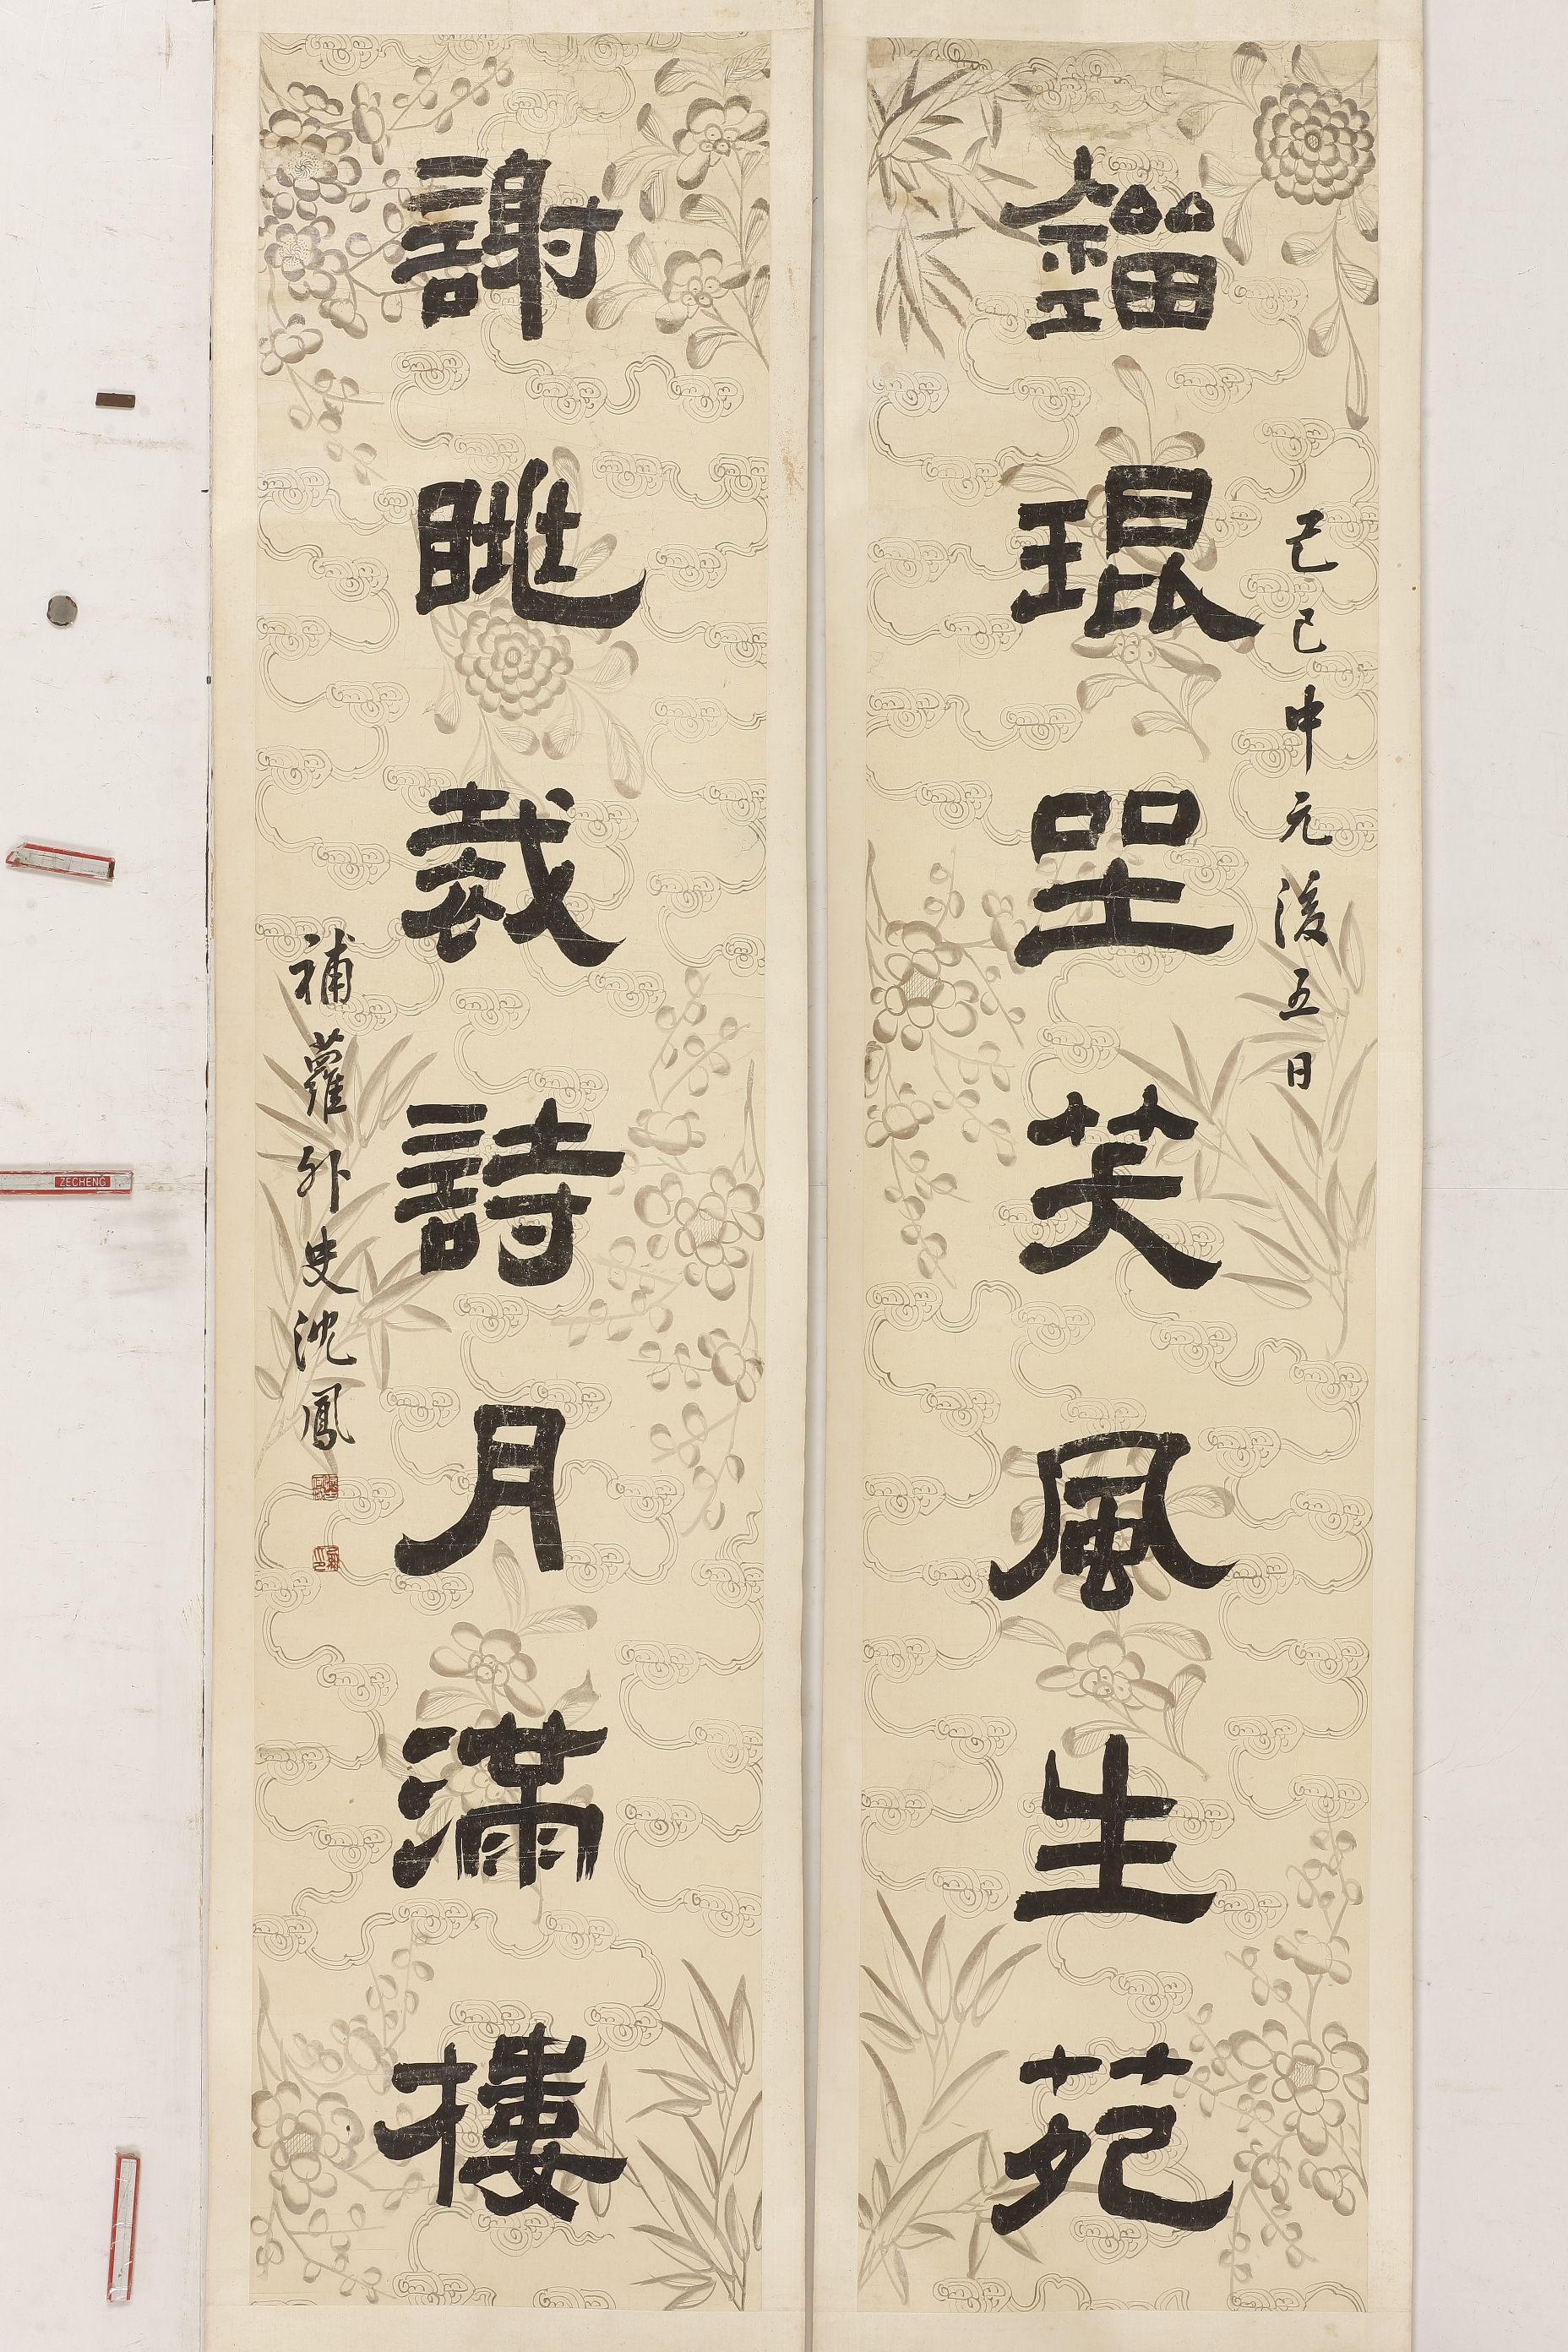 己巳中元後五日
鎦琨坐笑風生苑
謝眺裁詩月滿樓
補蘿外史沈鳳
ZECHENG